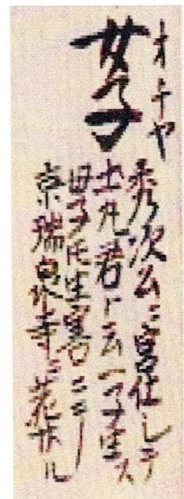 オチヤ
女子
秀次公ニ宮仕シテ
土丸君ト云一子生ス
母子生害
京瑞泉寺ニ葬ル